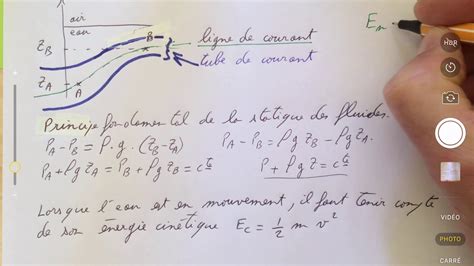 air
eau
B
Z_B
Z_A
A
ligne de courant
tube de courant
E_m
Principe fondamental de la statique des fluides.
P_A - P_B = ρ.g.(Z_B - Z_A)
P_A - P_B = ρg Z_B - ρg Z_A.
P_A + ρg Z_A = P_B + ρg Z_B = c^te
P + ρg Z = c^te
Lorsque l'eau est en mouvement, il faut tenir compte
de son énergie cinétique E_c = 1/2 m v^2
HDR
1x
VIDÉO
PHOTO
CARRÉ